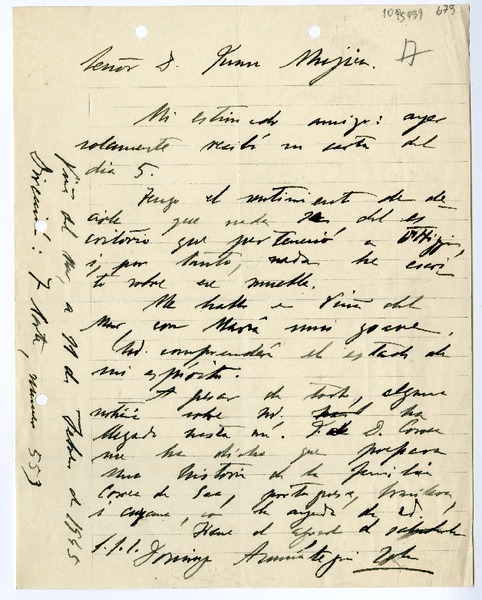 1095939 673
Señor D. Juan Mujica.
Mi estimado amigo: ayer
solamente recibí su carta del
día 5.
Tengo el sentimiento de de-
cirle que nada sé del es-
critorio que perteneció a O'Higgins,
i, por tanto, nada he escri-
to sobre ese mueble.
Me hallo en Viña del
Mar con María mui grave.
Ud. comprenderá el estado de
mi espíritu.
A pesar de todo, alguna
noticia sobre Ud. ha
llegado hasta mí. D. Correa
me ha dicho que prepara
una historia de la familia
Correa de Saa, portuguesa,
i con la ayuda de Ud.
Tiene el agrado de saludarlo
s.s.s. Domingo Amunátegui Solar
Viña del Mar, a 11 de Febrero de 1945
Dirección: 7 Norte, número 553